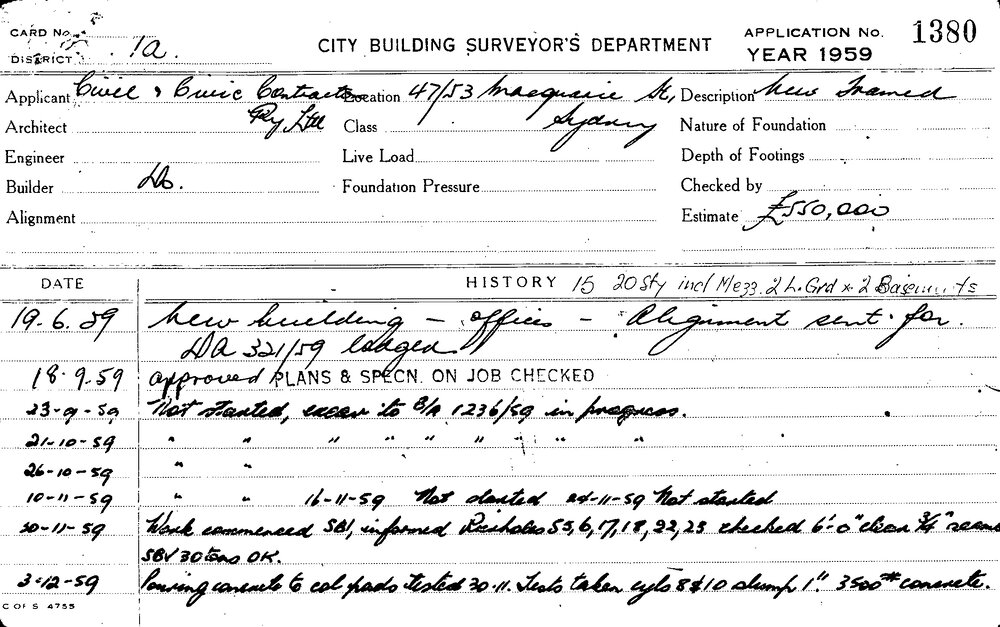 CARD No.
DISTRICT 1a.
CITY BUILDING SURVEYOR'S DEPARTMENT
APPLICATION No. 1380
YEAR 1959
Applicant Civil & Civic Contractors Location 47/53 Macquarie St, Description New Framed
Architect Pty Ltd Class Sydney Nature of Foundation
Engineer Live Load Depth of Footings
Builder Do. Foundation Pressure Checked by
Alignment Estimate £550,000
DATE HISTORY 15 20 Sty incl Mezz. 2 L. Grd & 2 Basements
19.6.59 New building - offices - Alignment sent for.
DA 321/59 lodged
18.9.59 approved PLANS & SPECN. ON JOB CHECKED
23-9-59 Not started, excav to B/A 1236/59 in progress.
21-10-59 " " " " " " " " "
26-10-59 " "
10-11-59 " " 16-11-59 Not started 24-11-59 Not started
30-11-59 Work commenced SBI, informed 55, 6, 17, 18, 22, 23 checked 6'-0" clean 3/4"
SBV 30 tons OK.
3-12-59 Pouring concrete to col pads tested 30.11. Tests taken cyls 8 & 10 slump 1". 3500# concrete.
C OF S 4755